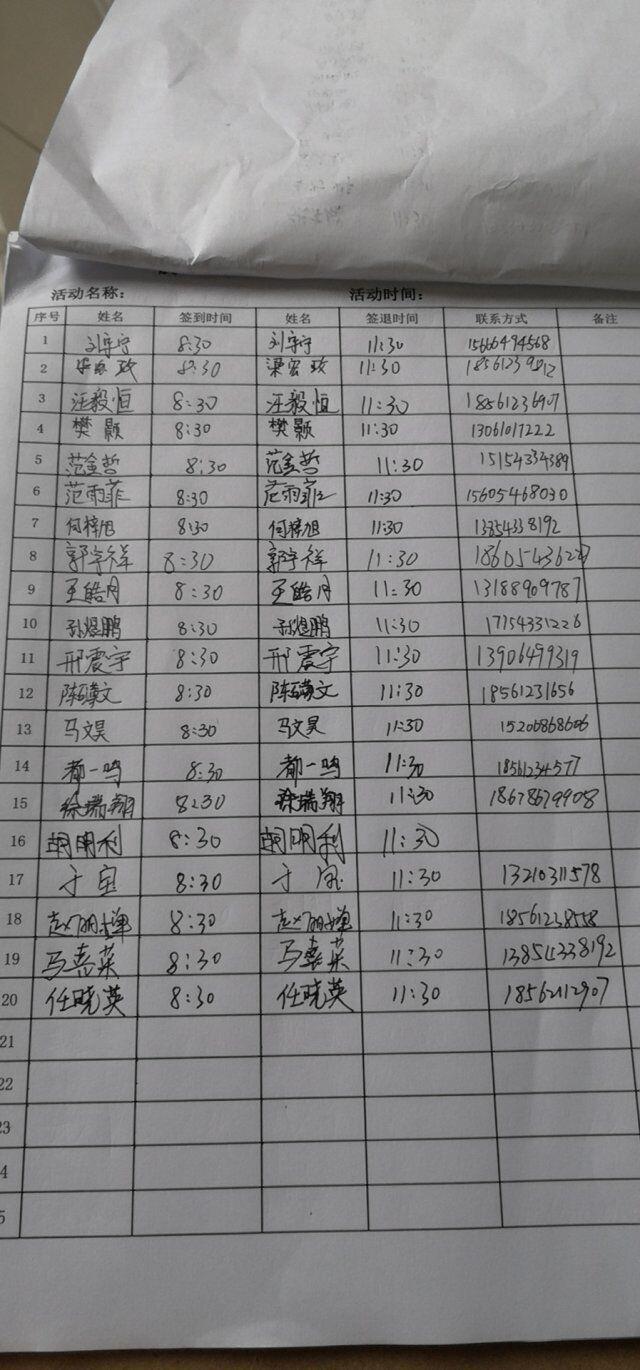 活动名称： 活动时间：
序号 姓名 签到时间 姓名 签退时间 联系方式 备注
1 刘宇宁 8:30 刘宇宁 11:30 15666494568
2 梁宏政 8:30 梁宏政 11:30
3 汪毅恒 8:30 汪毅恒 11:30 18561236907
4 樊颢 8:30 樊颢 11:30 13061017222
5 范金哲 8:30 范金哲 11:30 15154334389
6 范雨菲 8:30 范雨菲 11:30 15605468030
7 何梓旭 8:30 何梓旭 11:30 13854338192
8 郭宇祥 8:30 郭宇祥 11:30
9 王皓月 8:30 王皓月 11:30 13188909787
10 孙煜鹏 8:30 孙煜鹏 11:30 17754331226
11 邢震宇 8:30 邢震宇 11:30 13906499319
12 陈 文 8:30 陈 文 11:30 18561231656
13 马文昊 8:30 马文昊 11:30 15200868606
14 都一鸣 8:30 都一鸣 11:30 18561234577
15 徐瑞翔 8:30 徐瑞翔 11:30 18678679908
16 胡明利 8:30 胡明利 11:30
17 于宝 8:30 于宝 11:30 13210311578
18 赵丽婵 8:30 赵丽婵 11:30 18561238558
19 马嘉英 8:30 马嘉英 11:30 13854338192
20 任晓英 8:30 任晓英 11:30 18562112907
21
22
23
4
5